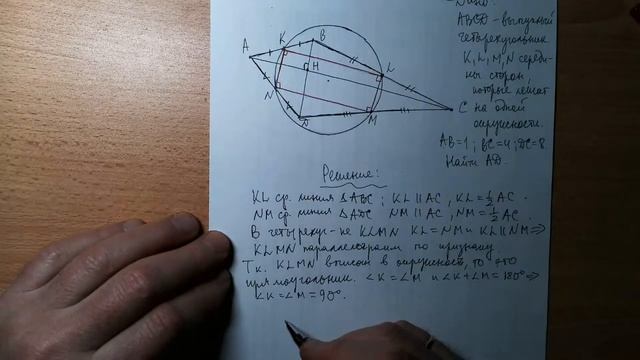 Дано:
ABCD - выпуклый
четырехугольник
K, L, M, N середи-
ны сторон,
которые лежат
на одной
окружности.
AB=1; BC=4; DC=8
Найти AD.
A
K
B
H
L
N
D
M
C
Решение:
KL ср. линия ΔABC; KL ∥ AC, KL = ½ AC.
NM ср. линия ΔADC NM ∥ AC, NM = ½ AC.
В четырехуг-ке KLMN KL = NM и KL ∥ NM ⇒
KLMN параллелограмм по признаку.
Т.к. KLMN вписан в окружность, то это
прямоугольник. ∠K = ∠M и ∠K + ∠M = 180° ⇒
∠K = ∠M = 90°.